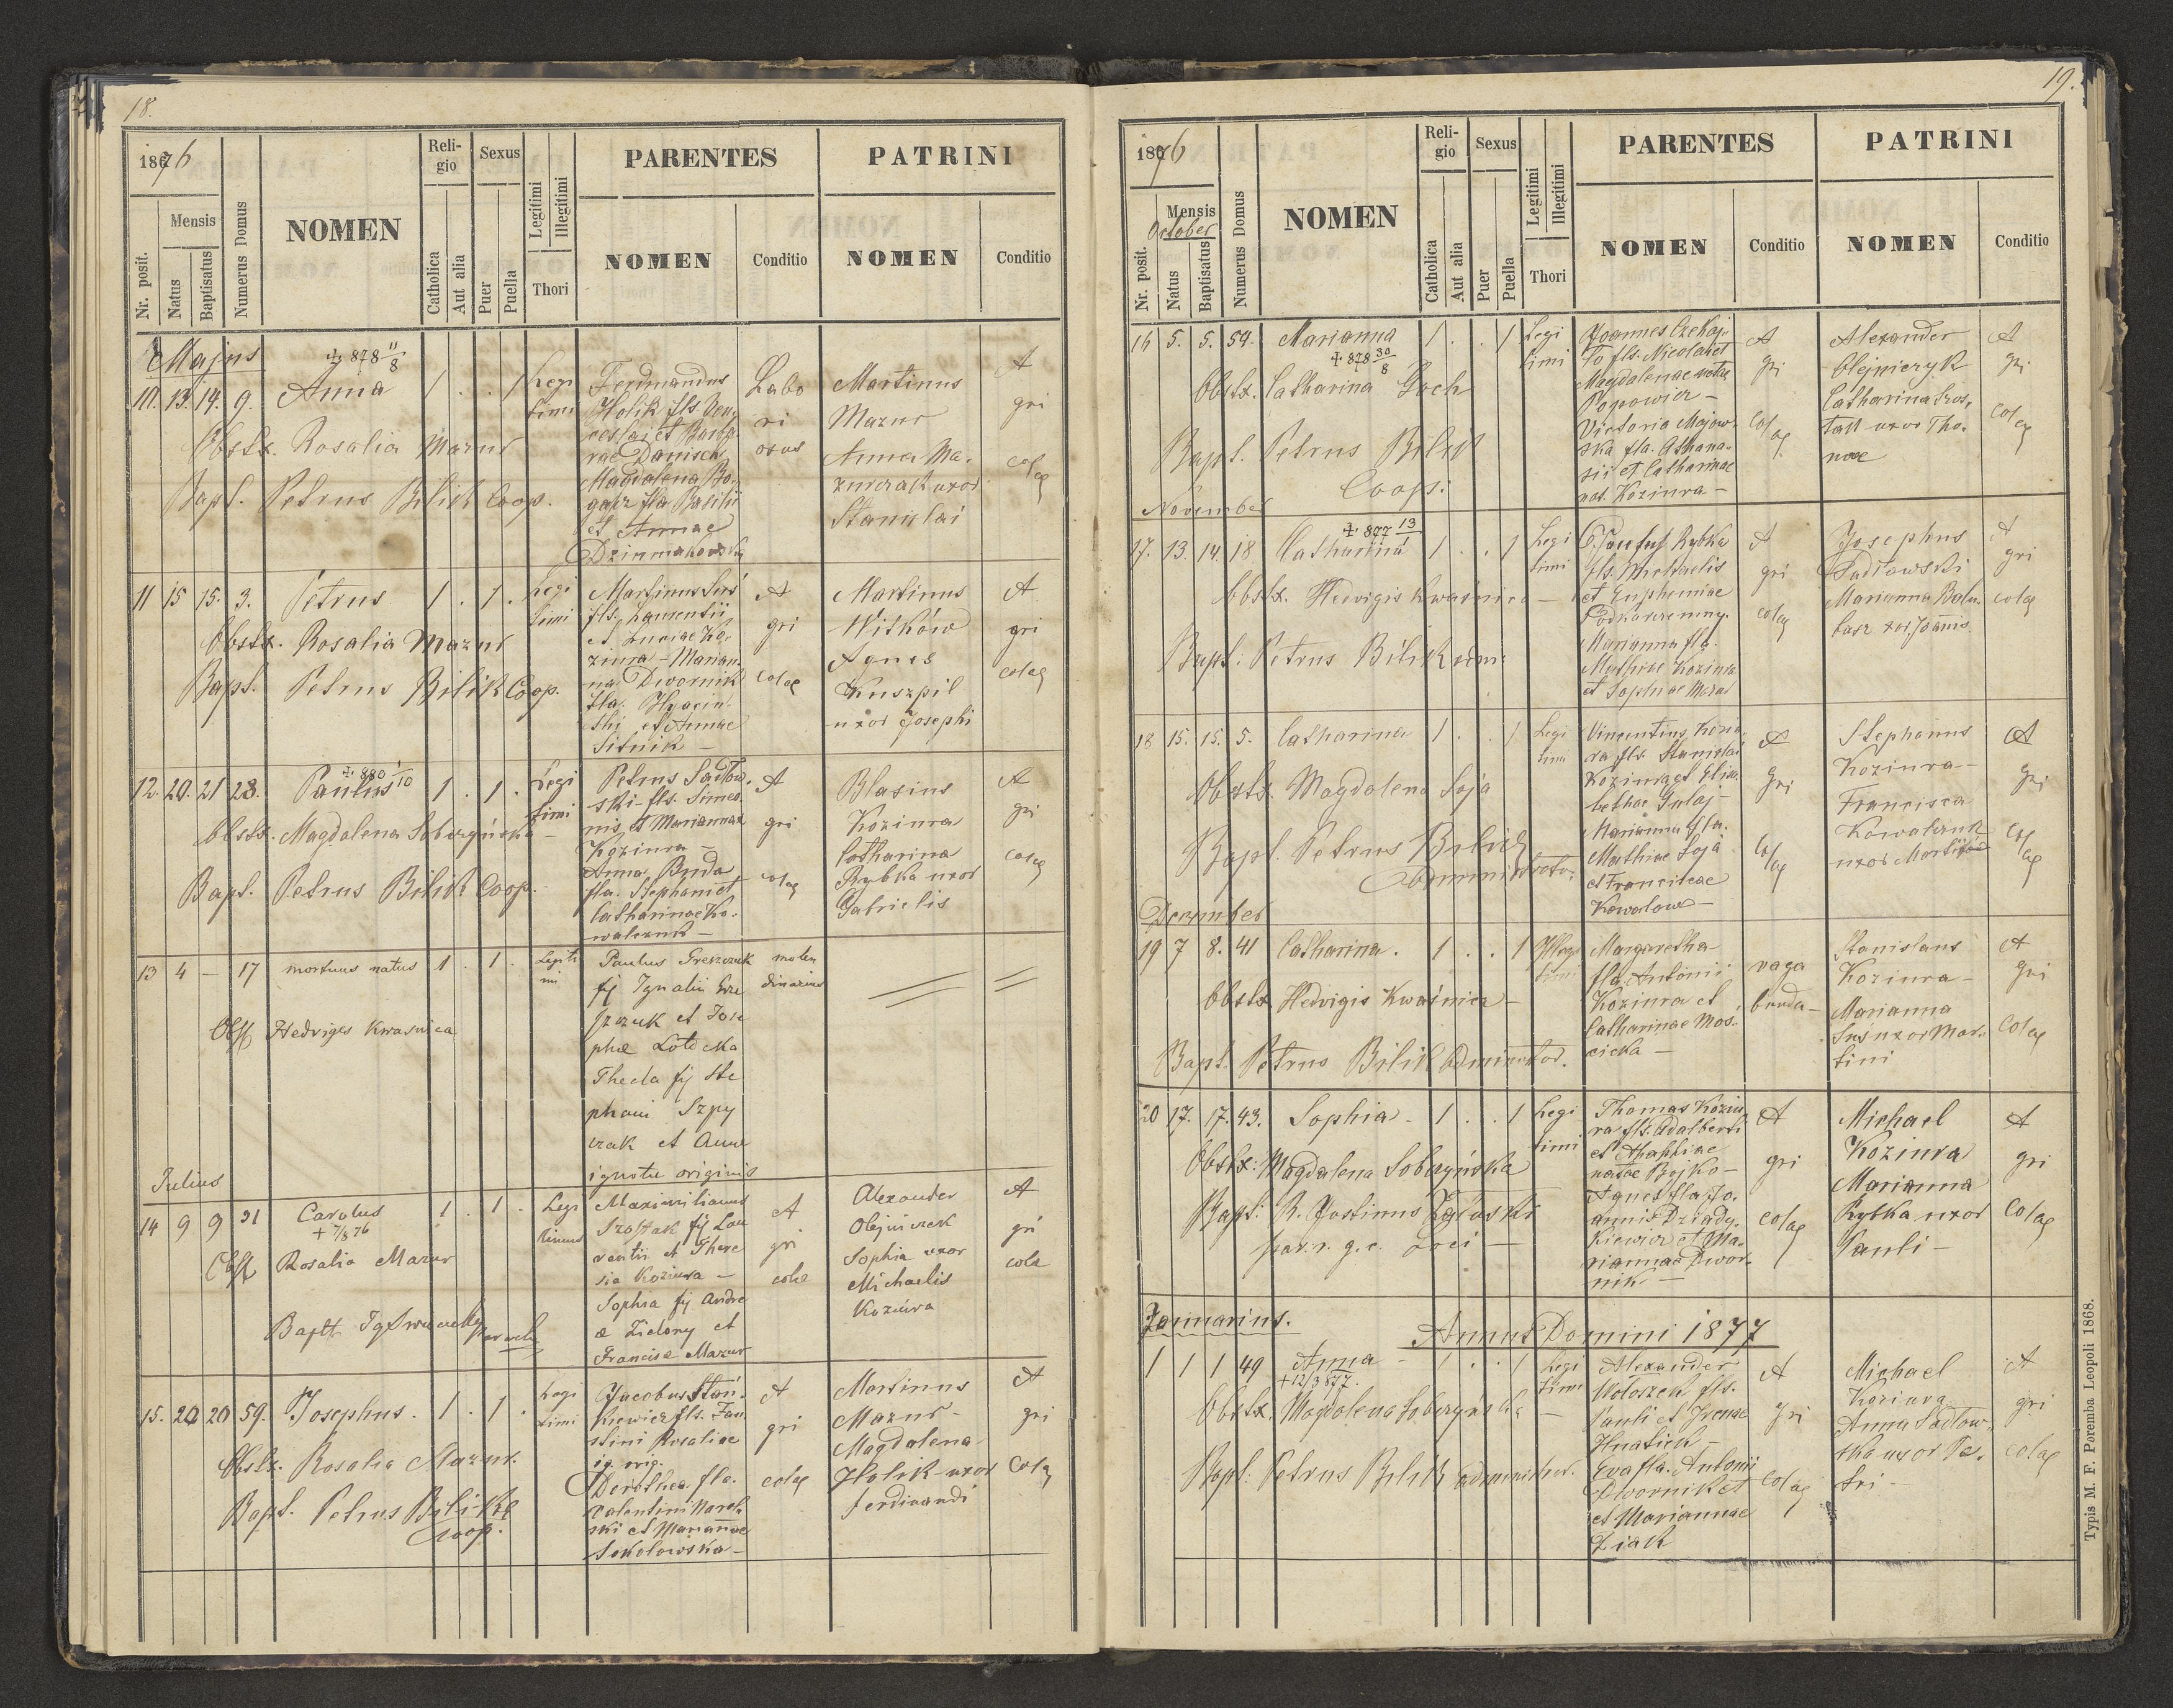 18.
1876
Mensis
Nr. posit.
Natus
Baptisatus
Numerus Domus
NOMEN
Religio
Catholica
Aut alia
Sexus
Puer
Puella
Legitimi
Illegitimi
Thori
PARENTES
NOMEN
Conditio
PATRINI
NOMEN
Conditio
Majus
10. 13. 14. 9. Anna 1 . . 1 Legi
timi
☩ 878 11/8
Obstx. Rosalia Mazur
Bapt. Petrus Bilik Coop.
Ferdinandus
Holik fls. Ven-
ceslai et Barba-
rae Danisch
Magdalena
fla Basilii
et Annae
Labo
ri
osus
Martinus
Mazur
Anna Ma-
zurczak uxor
Stanislai
A
gri
colae
11 15 15. 3. Petrus 1 . 1 . Legi
timi
Obstx. Rosalia Mazur
Bapt. Petrus Bilik Coop.
Martinus Suś
fls. Laurentii
et Luciae Ko-
ziura - Marian-
na Dwornik
fla. Hyacin-
thi et Annae
Sitnik -
A
gri
colae
Martinus
Witków
Agnes
Kuszpil
uxor Josephi
A
gri
colae
12. 20. 21 28. Paulus 1 . 1 . Legi
timi
☩ 880 1/10
Obstx. Magdalena Soboryńska -
Bapt. Petrus Bilik Coop.
Petrus Sadłow-
ski - fls. Simeo-
nis et Mariannae
Koziura -
Anna Buda
fla. Stephani et
Catharinae Ko-
walczuk -
A
gri
colae
Blasius
Koziura
Catharina
Rybka uxor
Gabrielis
A
gri
colae
13 4 - 17 mortuus natus 1 . 1 . Legiti
mi
Obst Hedviges Kwasnica
Paulus Greszczuk
fij Ignatii Gre
szczuk et Jose
phae Lotocka
Thecla fij Ste
phani Szpy
czak et Annae
ignotae originis
molen
dinarius
Julius
14 9 9 31 Carolus 1 . 1 . Legi
timus
+ 7/8 76
Obst Rosalia Mazur
Maximilianus
Szostak fij Lau
rentii et There
sia Koziura -
Sophia fij Andre
ae Zielony et
Francisae Mazur
A
gri
colae
Alexander
Olejniczek
Sophia uxor
Michaelis
Koziura
A
gri
cola
15. 20 20 59. Josephus. 1 . 1 . Legi
timi
Obstx. Rosalia Mazur.
Bapt. Petrus Bilik
Coop.
Jacobus Stan-
kiewicz fls. Fau-
stini Rosaliae
ig. orig.
Dorothea fla.
Valentini
ski et Mariannae
Sokołowska -
A
gri
colae
Martinus
Mazur -
Magdalena
Holik - uxor
Ferdinandi
A
gri
colae
19.
1876
Mensis
October
Nr. posit.
Natus
Baptisatus
Numerus Domus
NOMEN
Religio
Catholica
Aut alia
Sexus
Puer
Puella
Legitimi
Illegitimi
Thori
PARENTES
NOMEN
Conditio
PATRINI
NOMEN
Conditio
16 5. 5. 59. Marianna 1 . . 1 Legi
timi
☩ 878 30/8
Obstx. Catharina Groch
Bapt. Petrus Bilik
Coop:
Joannes Czekaj-
ło fls. Nicolai et
Magdalenae natae
Popowicz -
Victoria Majew-
ska fla. Athana-
sii et Catharinae
nat. Koziura -
A
gri
colae
Alexander
Olejniczyk
Catharina Szos-
tak uxor Tho-
mae
A
gri
colae
November
17. 13. 14. 18 Catharina 1 . . 1 Legi
timi
☩ 877 13/
Obstx. Hedvigis Kwaśnica -
Bapt: Petrus Bilik
Paulus Rybka
fls. Michaelis
et Euphemiae
Marianna fla.
Mathiae Koziura
et Sophiae Mazur
A
gri
colae
Josephus
Sadłowski
Marianna
uxor Joannis
A
gri
colae
18 15. 15. 5. Catharina 1 . . 1 Legi
timi
Obstx. Magdalena Soja
Bapt. Petrus Bilik
Administrator
Vincentius Koziu-
ra fls. Stanislai
Koziura et Elisa-
bethae Gulaj -
Marianna fla.
Mathiae Soja
et Franciscae
Kowalow -
A
gri
colae
Stephanus
Koziura -
Francisca
Kowalczuk
uxor Martini
A
gri
colae
December
19 7 8. 41 Catharina. 1 . . 1 Illegi
timi
Obstx Hedvigis Kwaśnica -
Bapt. Petrus Bilik Administrator.
Margaretha
fla. Antonii
Koziura et
Catharinae Moś-
cicka -
vaga
bunda -
Stanislaus
Koziura -
Marianna
Suś uxor Mar-
tini
A
gri
colae
20 17. 17. 43. Sophia - 1 . . 1 Legi
timi
Obstx: Magdalena Soboryńska
Bapt: R. Justinus Załuski
par. r. g. c. loci -
Thomas Koziu-
ra fls. Adalberti
et Agaphiae
natae Bojko -
Agnes fla Jo-
annis Dziady-
kiewicz et Ma-
riannae Dwor-
nik -
A
gri
colae
Michael
Koziura
Marianna
Rybka uxor
Pauli -
A
gri
Colae
Januarius.
Annus Domini 1877
1 1 1 49 Anna - 1 . . 1 Legi
timi
+ 12/3 877.
Obstx. Magdalena Soboryńska -
Bapt: Petrus Bilik administrat.
Alexander
Wołoszek fls.
Pauli et Irenae
Hnatick -
Eva fla. Antonii
Dwornik et
et Mariannae
Ziak
A
gri
colae
Michael
Koziura
Anna Sadłow-
ska uxor Pe-
tri -
A
gri
colae
Typis M. F. Poremba Leopoli 1868.